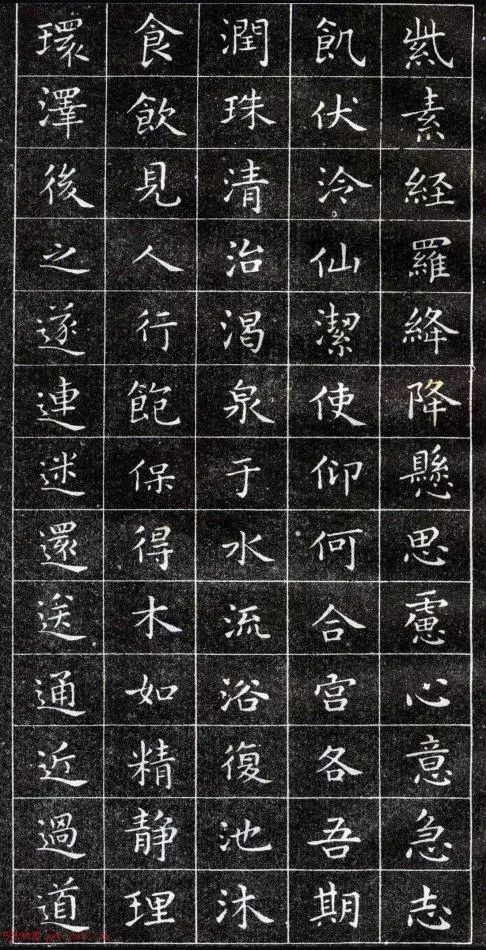 紫素經羅絳降懸思慮心意急志
飢伏泠仙潔使仰何合宮各吾期
潤珠清治渴泉于水流浴復池沐
食飲見人行飽保得木如精靜理
環澤後之遂連迷還送通近過道